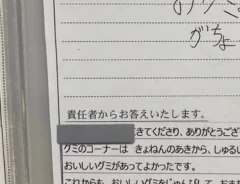 グミ
がちょ
責任者からお答えいたします。
きてくださり、ありがとうござ
グミのコーナーは きょねんのあきから、しゅるい
おいしいグミがあってよかったです。
これからも、おいしいグミをじゅんびして、おま